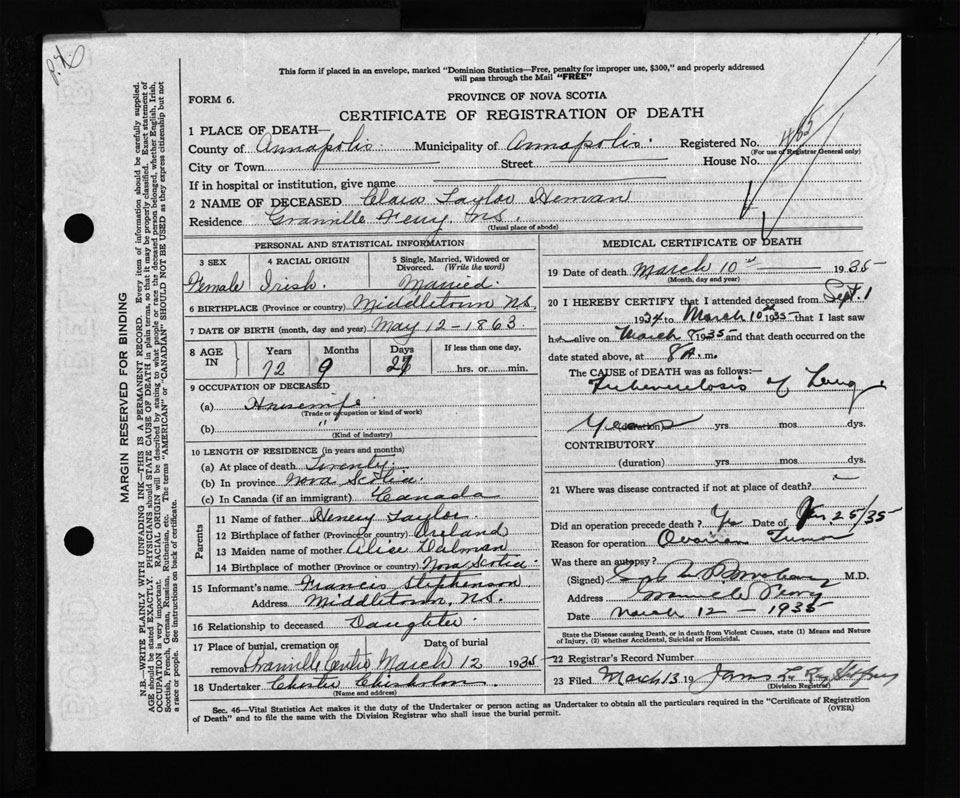 This form if placed in an envelope, marked "Dominion Statistics—Free, penalty for improper use, $300," and properly addressed
will pass through the Mail "FREE"
FORM 6.
PROVINCE OF NOVA SCOTIA
CERTIFICATE OF REGISTRATION OF DEATH
MARGIN RESERVED FOR BINDING
N.B.—WRITE PLAINLY WITH UNFADING INK—THIS IS A PERMANENT RECORD. Every item of information should be carefully supplied.
AGE should be stated EXACTLY. PHYSICIANS should STATE CAUSE OF DEATH in plain terms, so that it may be properly classified. Exact statement of
OCCUPATION is very important. RACIAL ORIGIN will be described by stating to what people or race the deceased person belonged, whether English, Irish,
Scottish, French, German, Russian, Ruthenian, etc. The terms "AMERICAN" or "CANADIAN" SHOULD NOT BE USED as they express citizenship but not
a race or people. See instructions on back of certificate.
1 PLACE OF DEATH—
County of Annapolis. Municipality of Annapolis. Registered No.
(For use of Registrar General only)
City or Town Street House No.
If in hospital or institution, give name
2 NAME OF DECEASED Clara Taylor Heman
Residence Granville Ferry, N.S.
(Usual place of abode)
PERSONAL AND STATISTICAL INFORMATION
3 SEX 4 RACIAL ORIGIN 5 Single, Married, Widowed or
Divorced. (Write the word)
Female Irish. Married.
6 BIRTHPLACE (Province or country) Middletown N.S.
7 DATE OF BIRTH (month, day and year) May 12-1863.
8 AGE IN Years Months Days If less than one day,
72 9 hrs. or min.
9 OCCUPATION OF DECEASED
(a) Housewife
(Trade or occupation or kind of work)
(b) "
(Kind of industry)
10 LENGTH OF RESIDENCE (in years and months)
(a) At place of death Twenty.
(b) In province Nova Scotia.
(c) In Canada (if an immigrant) Canada
Parents
11 Name of father Henery Taylor
12 Birthplace of father (Province or country) Ireland
13 Maiden name of mother Alice Dalman
14 Birthplace of mother (Province or country) Nova Scotia
15 Informant's name Francis Stephenson
Address Middletown, N.S.
16 Relationship to deceased Daughter.
17 Place of burial, cremation or Date of burial
removal Granville Centre March 12 1935
18 Undertaker Chester Chisholm
(Name and address)
MEDICAL CERTIFICATE OF DEATH
19 Date of death March 10 1935
(Month, day and year)
20 I HEREBY CERTIFY that I attended deceased from Sept. 1
1934 to March 10 1935 that I last saw
her alive on March 8 1935 and that death occurred on the
date stated above, at 8 A. m.
The CAUSE OF DEATH was as follows:—
Tuberculosis of Lung
Years (duration) yrs mos dys.
CONTRIBUTORY
(duration) yrs mos dys.
21 Where was disease contracted if not at place of death?
Did an operation precede death? Yes Date of 25/35
Reason for operation Ovarian Tumor
Was there an autopsy?
(Signed) M.D.
Address
Date March 12 - 1935
State the Disease causing Death, or in death from Violent Causes, state (1) Means and Nature
of Injury, (2) whether Accidental, Suicidal or Homicidal.
22 Registrar's Record Number
23 Filed March 13 19
(Division Registrar)
Sec. 46—Vital Statistics Act makes it the duty of the Undertaker or person acting as Undertaker to obtain all the particulars required in the "Certificate of Registration
of Death" and to file the same with the Division Registrar who shall issue the burial permit.
(OVER)